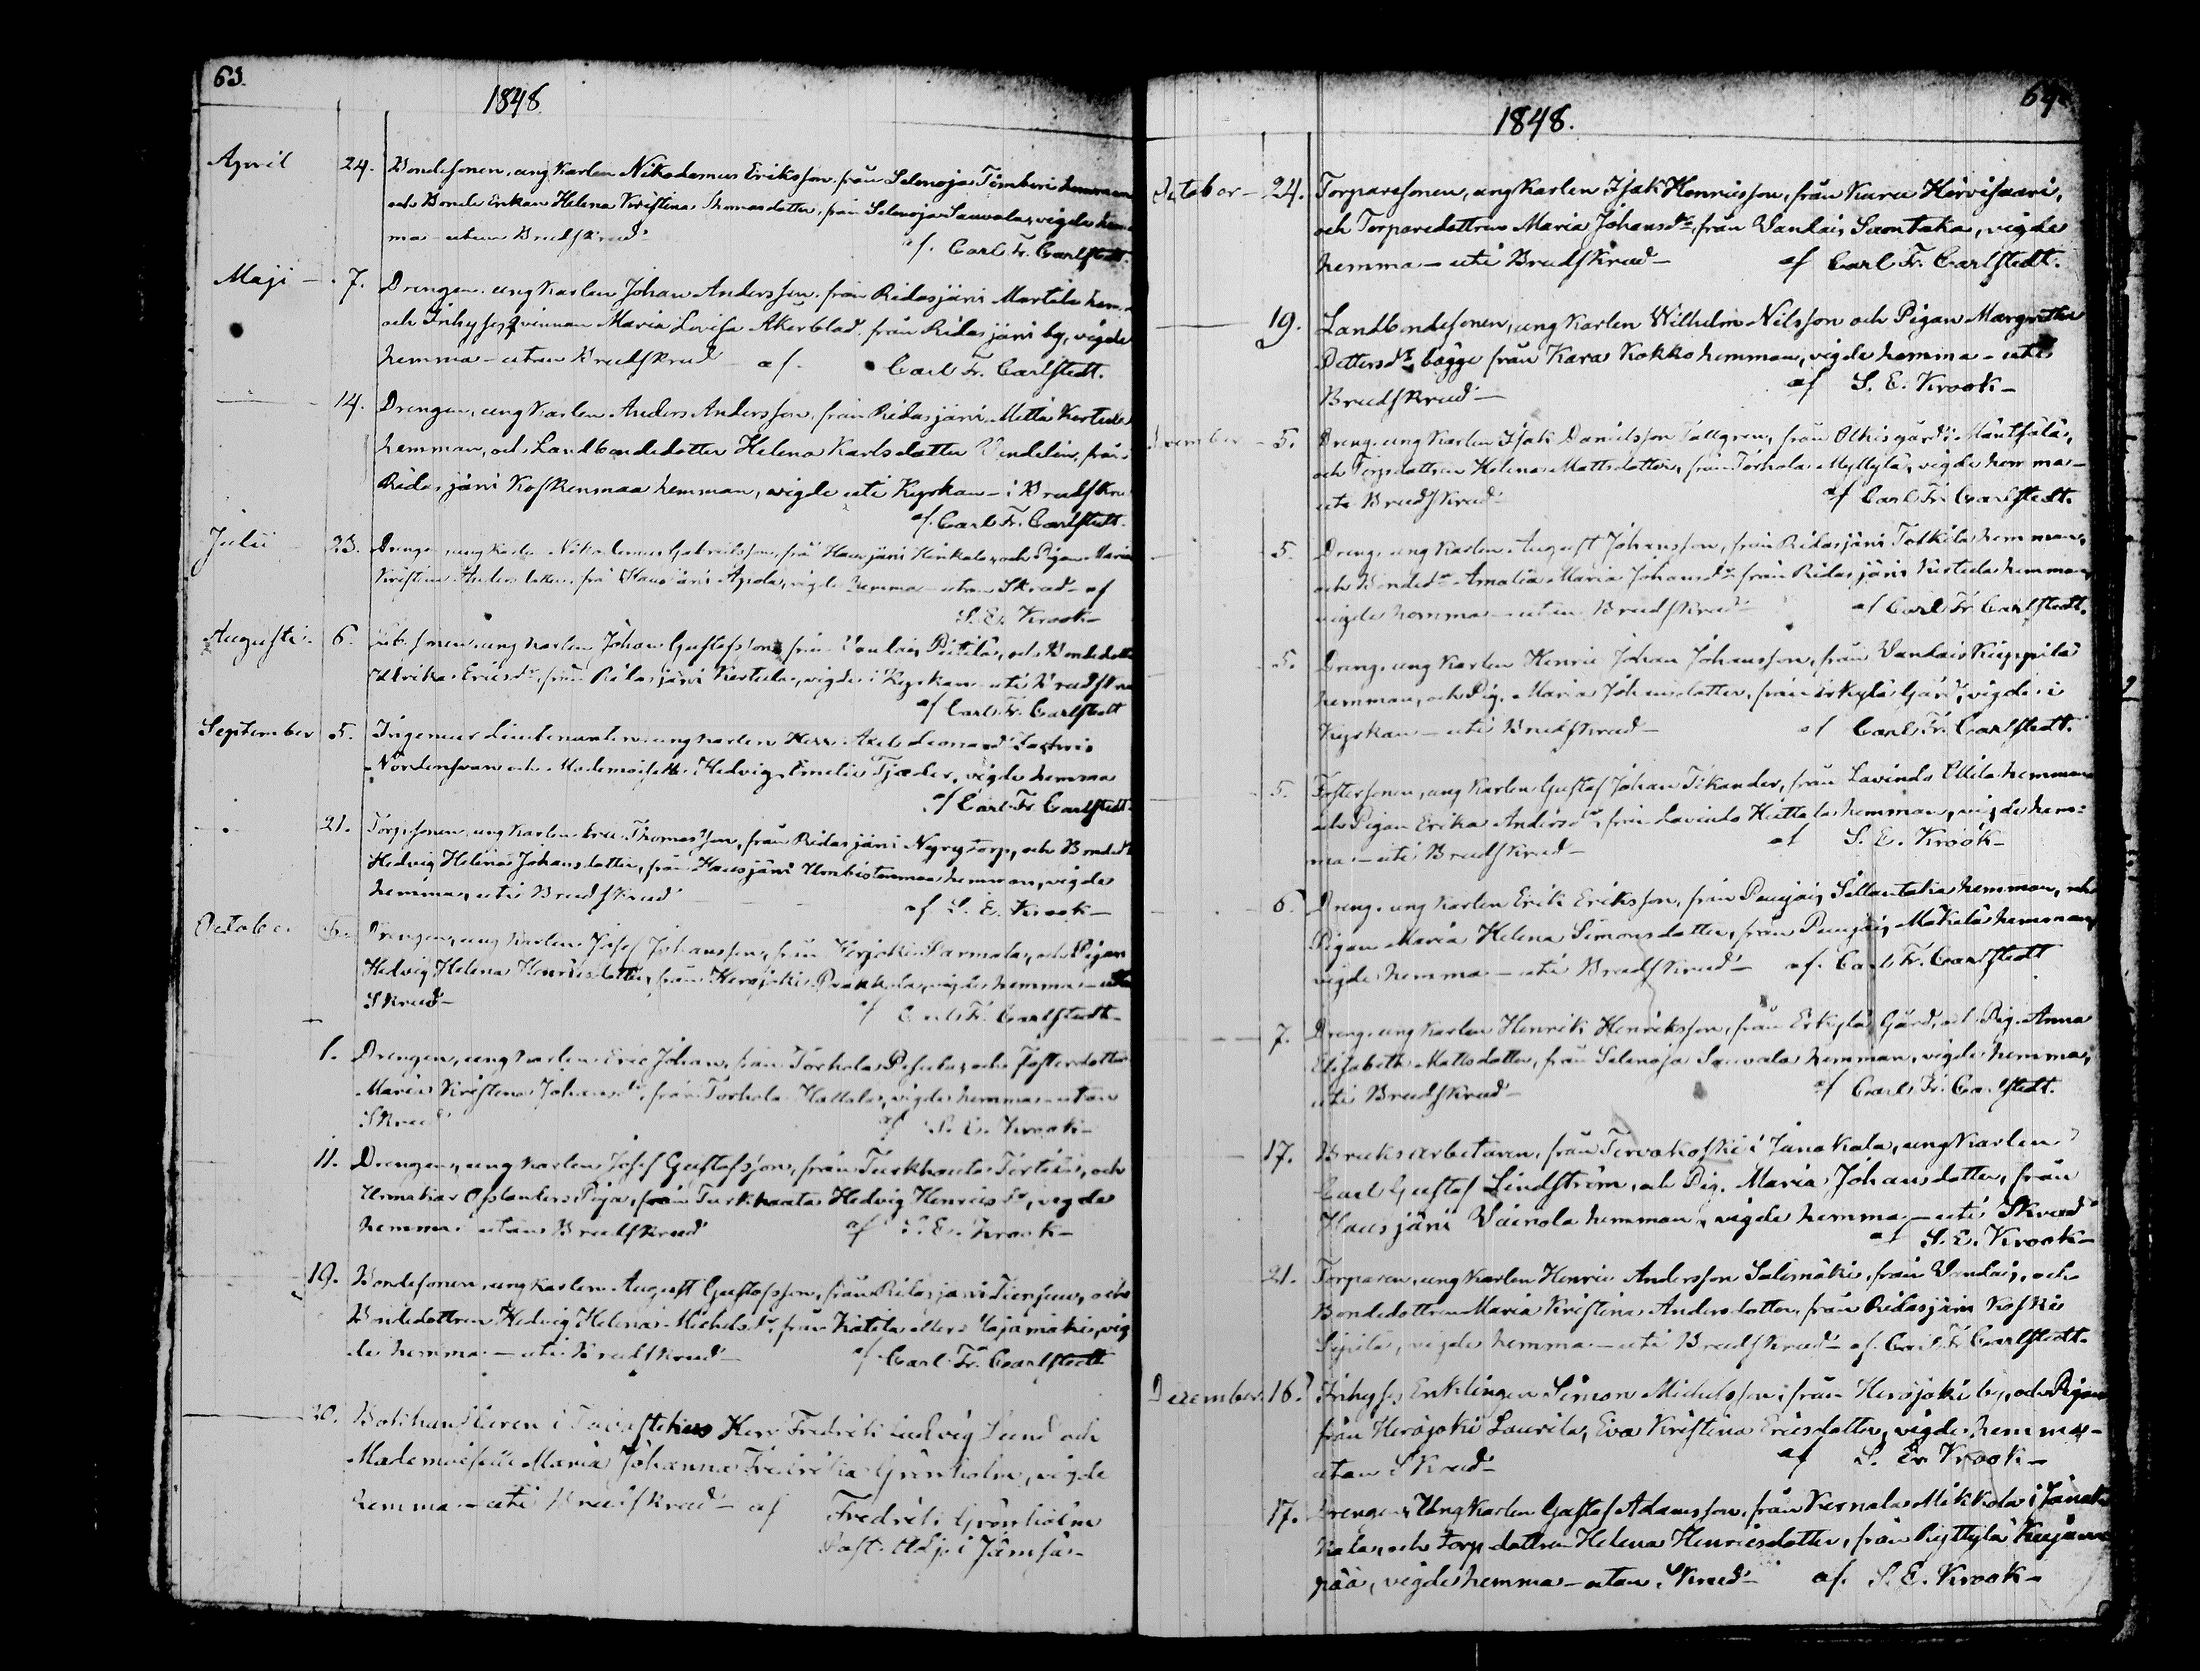 63.
1848.
April 24. Bondesonen, ungkarlen Nikodemus Eriksson, från Selenoja Tömberi hemman
och Bonde Enkan Helena Kristina Thomasdotter, från Selenoja Sauvala, vigde hem-
ma - utan Brudskrud af. Carl Fr. Carlstedt.
Maji - 7. Drengen, ungkarlen Johan Andersson, från Ridasjärvi Martila hem.
och Inhyses qvinnan Maria Lovisa Åkerblad, från Ridasjärvi by, vigde
hemma - utan Brudskrud af. Carl Fr. Carlstedt.
14. Drengen, ungkarlen Anders Andersson, från Ridasjärvi Kertula
hemman, och Landbondedotter Helena Karlsdotter Vendelin, från
Ridasjärvi Koskenmaa hemman, vigde uti Kyrkan - i Brudskru
af. Carl Fr. Carlstedt.
Julii 23. Drengen, ungkarlen Nikodemus Gabrielsson, från Hausjärvi och Pigan Maria
Kristina Andersdotter, från Hausjärvi vigde hemma - utan Skrud - af
S. E. Krook -
Augusti. 6. ungkarlen Johan Gustafsson, från Vandais Pietilä, och Bondedott
Ulrika Ericsdr, från Ridasjärvi Kertula, vigde i Kyrkan - uti Brudskru
af Carl Fr. Carlstedt
September 5. Ingenieur Lieutenanten, ungkarlen Herr Axel Leonard
Nordensvan och Mademoiselle Hedvig Emelie Tjæder, vigde hemma
af Carl Fr. Carlstedt.
21. Torpsonen, ungkarlen Eric Thomasson, från Ridasjärvi Nyrytorp, och Bondedr
Hedvig Helena Johansdotter, från Hausjärvi hemman, vigde
hemma, uti Brudskrud af S. E. Krook -
October Drengen, ungkarlen Josef Johansson, från och Pigan
Hedvig Helena Henricsdotter, från Herajoki Prakkala, vigde hemma - utan
Skrud - af Carl Fr. Carlstedt -
1. Drengen, ungkarlen Eric Johan, från Torhola och Fosterdotter
Maria Kristina Johansdr, från Torhola Hattala, vigde hemma - utan
Skrud af S. E. Krook -
11. Drengen, ungkarlen Josef Gustafsson, från Turkhauta Torttila, och
Piga, från Turkhauta Hedvig Henricsdr, vigde
hemma - utan Brudskrud af S. E. Krook -
19. Bondesonen, ungkarlen August Gustafsson, från Ridasjärvi och
Bondedottren Hedvig Helena Michelsdr, från Katila eller Hajamäki, vig
de hemma - uti Brudskrud - af Carl Fr. Carlstedt
20. Bokhandlaren i Tavastehus Herr Fredrik Ludvig Lund och
Mademoiselle Maria Johanna Fredrika Grönholm, vigde
hemma - uti Brudskrud - af Fredrik Grönholm
Past. Adj. i Jämsä -
64.
1848.
October - 24. Torparesonen, ungkarlen Isak Henricsson, från Kara Hirvisaari,
och Torparedottren Maria Johansdr, från Vandais Suontaka, vigde
hemma - uti Brudskrud - af Carl Fr. Carlstedt.
19. Landbondesonen, ungkarlen Wilhelm Nilsson och Pigan Margretha
Pettersdr, bägge från Kara Kokko hemman, vigde hemma - uti
Brudskrud - af S. E. Krook -
November - 5. Dreng. ungkarlen Isak Danielsson Tallgren, från gård i Mäntsälä,
och Torpdottren Helena Mattsdotter, från Torhola Myllylä, vigde hemma -
uti Brudskrud af Carl Fr. Carlstedt.
5. Dreng. ungkarlen August Johansson, från Ridasjärvi Tolkila hemman,
och Bondedr Amalia Maria Johansdr från Ridasjärvi Kertula hemman,
vigde hemma - utan Brudskrud - af Carl Fr. Carlstedt.
5. Dreng. ungkarlen Henric Johan Johansson, från Vandais Kieppilä
hemman, och Pig. Maria Johansdotter, från Erkylä Gård, vigde i
Kyrkan - uti Brudskrud - af Carl Fr. Carlstedt.
5. Fostersonen, ungkarlen Gustaf Johan Tikander, från Lavinda Ellilä hemman
och Pigan Erika Andersdr, från Lavinda hemman, vigde hem-
ma - uti Brudskrud - af S. E. Krook -
6. Dreng. ungkarlen Erik Eriksson, från Punjais Sillantaka hemman, och
Pigan Maria Helena Simonsdotter, från Punjais Mäkelä hemman,
vigde hemma - uti Brudskrud - af. Carl Fr. Carlstedt
7. Dreng. ungkarlen Henrik Henriksson, från Erkylä Gård, och Pig. Anna
Elisabeth Mattsdotter, från Selenoja Sauvala hemman, vigde hemma,
uti Brudskrud - af Carl Fr. Carlstedt.
17. Bruksarbetaren, från Tervakoski i Janakala, ungkarlen
Carl Gustaf Lindström, och Pig. Maria Johansdotter, från
Hausjärvi Väinola hemman, vigde hemma - uti Skrud
af S. E. Krook -
21. Torparen, ungkarlen Henric Andersson Salomäki, från Vandais, och
Bondedottren Maria Kristina Andersdotter, från Ridasjärvi Koski
Sipilä, vigde hemma - uti Brudskrud - af. Carl Fr. Carlstedt.
December. 16. Inhyses Enklingen Simon Michelsson, från Herajoki by, och Pigan
från Herajoki Laurila, Eva Kristina Ericsdotter, vigde hemma -
utan Skrud - af S. E. Krook -
17. Drengen, Ungkarlen Gustaf Adamsson, från Kernala Mikkola i Janak-
kala, och Torpdottren Helena Henricsdotter, från Ryttylä Kujan-
pää, vigde hemma - utan Skrud - af. S. E. Krook -